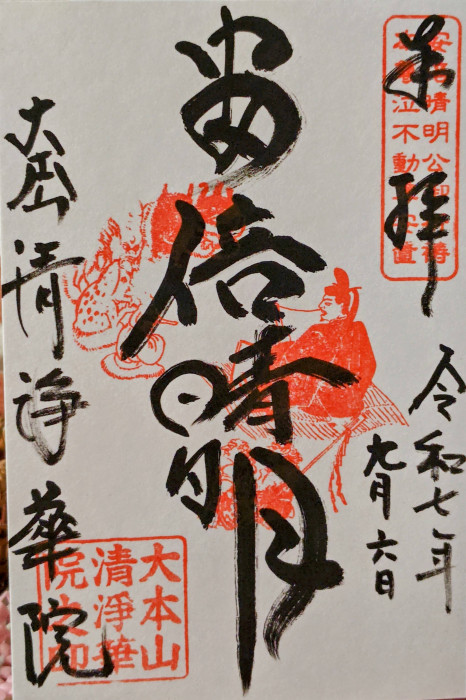 奉拝
安倍晴明公
泣不動尊安置
令和七年
九月六日
安倍晴明
大本山
清浄華院
大本山
清淨華
院之印